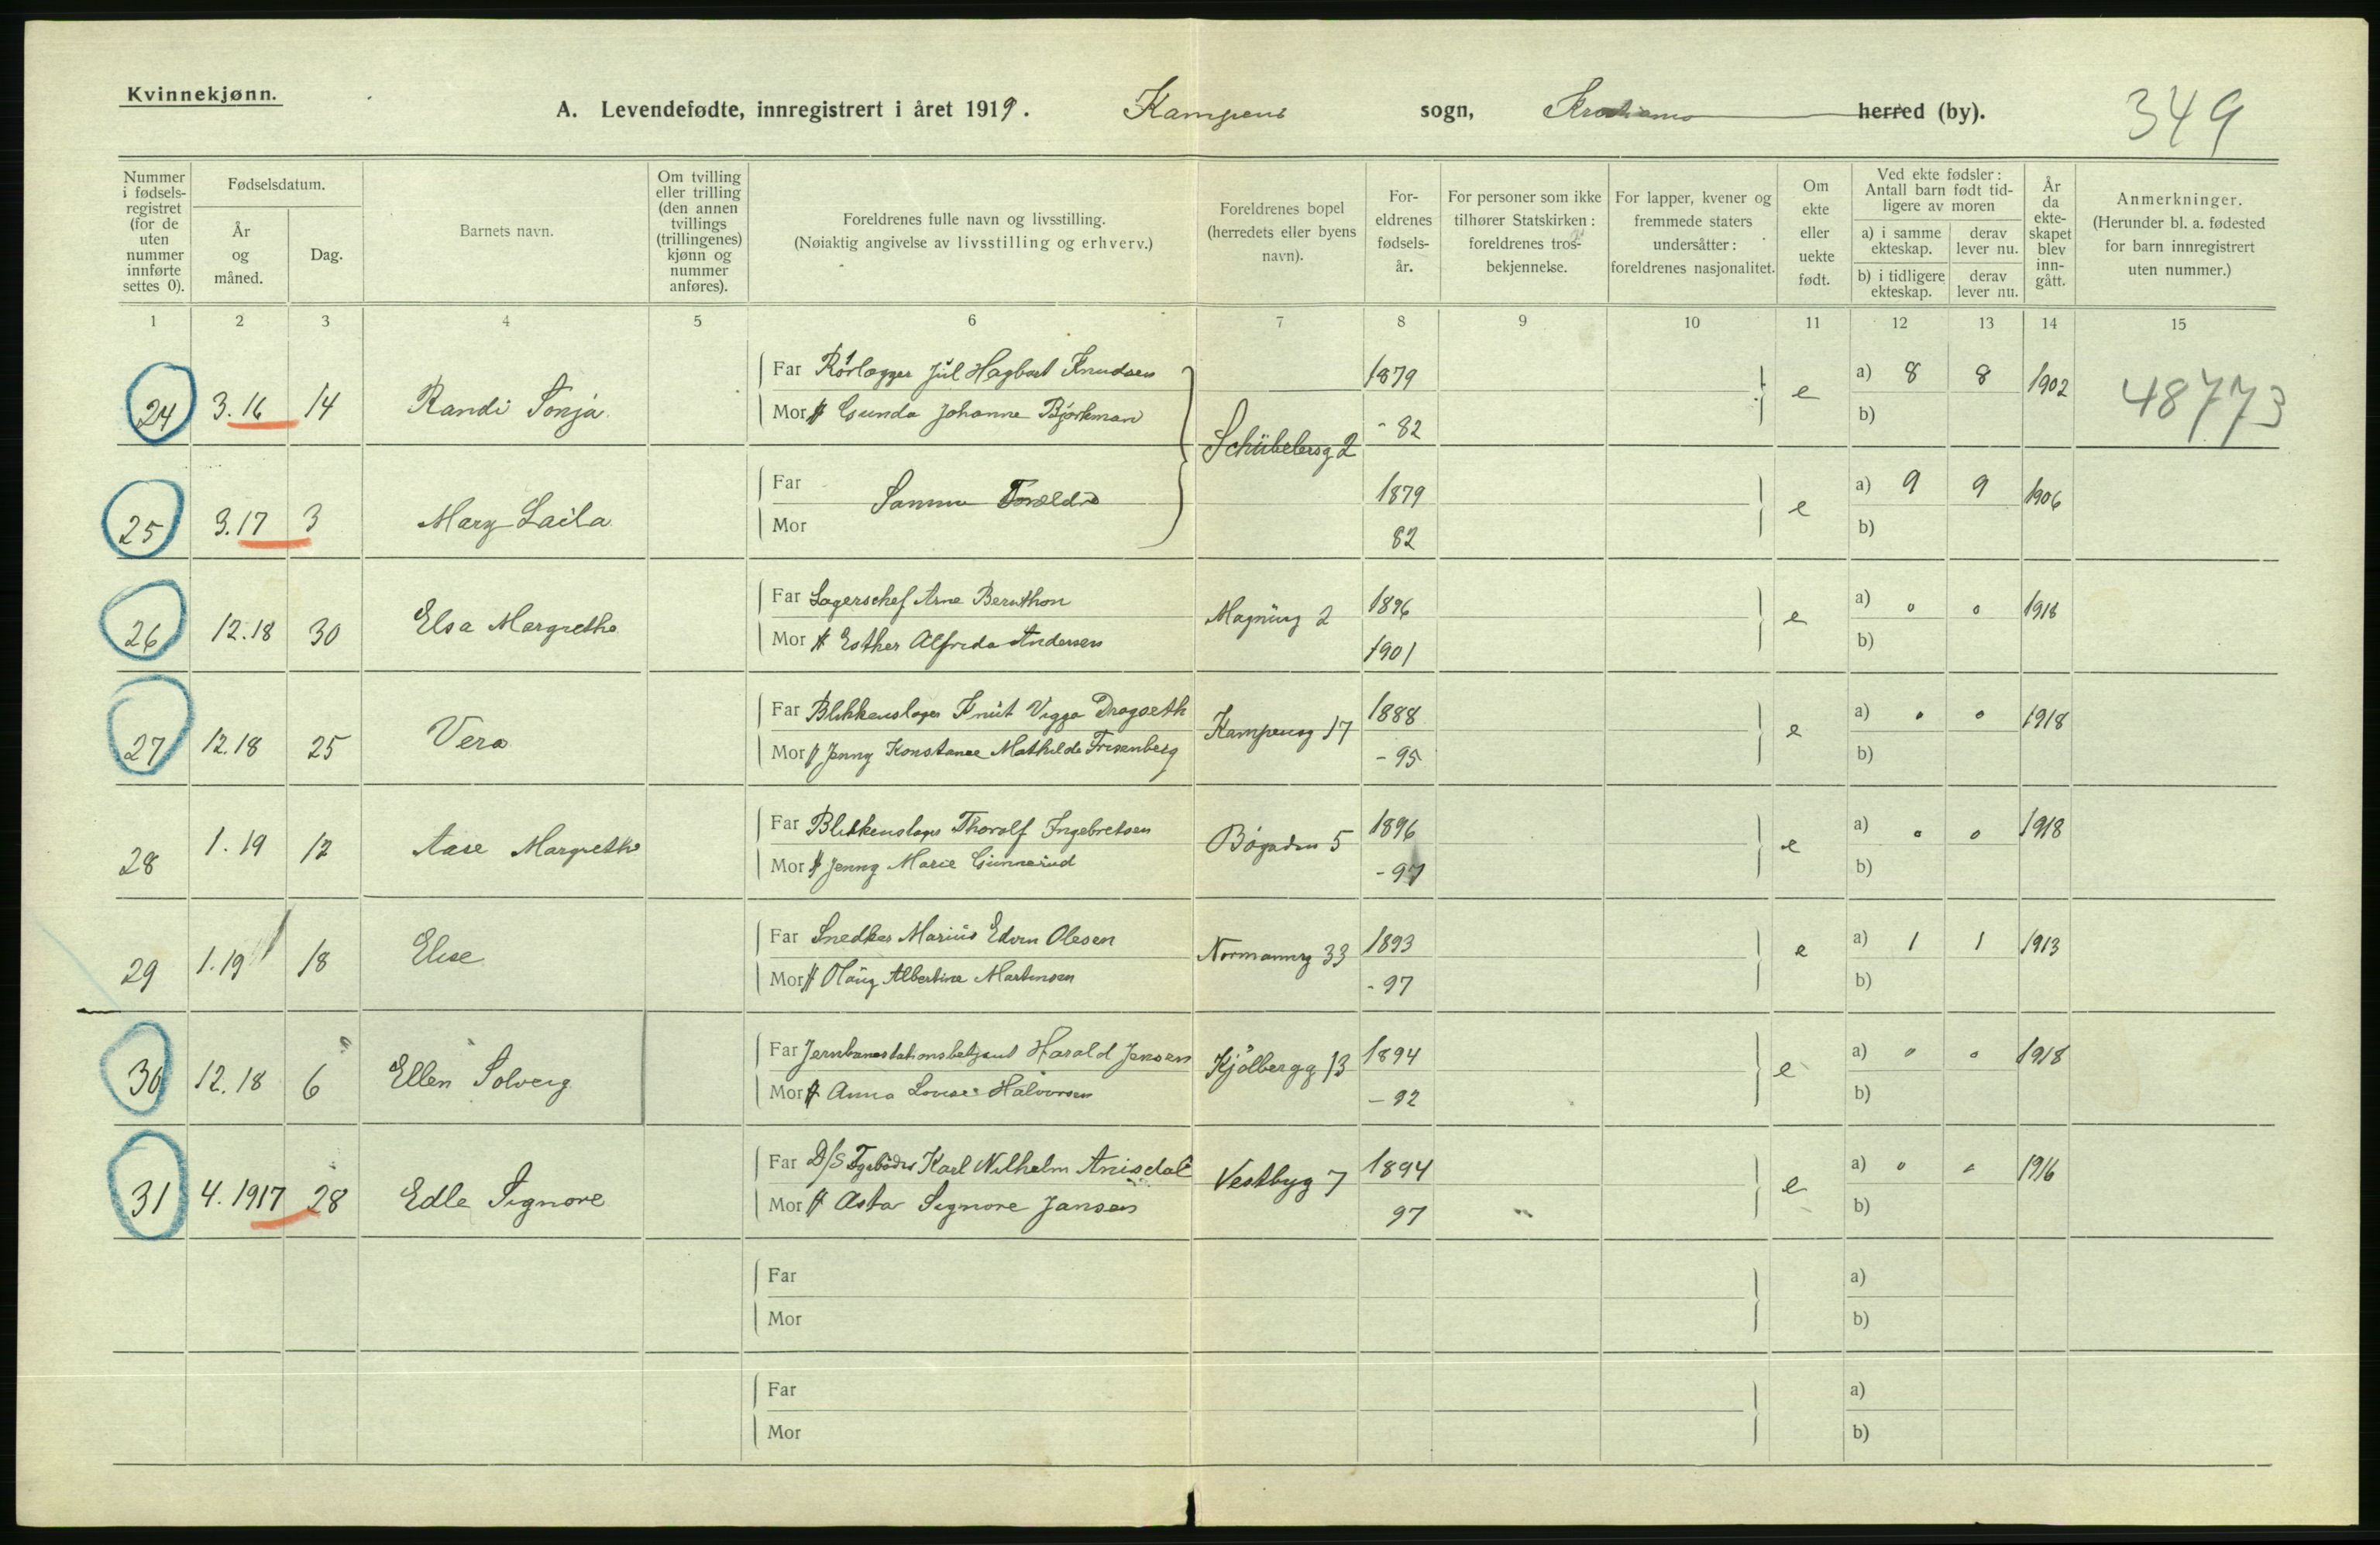 Kvinnekjønn.
A. Levendefødte, innregistrert i året 1919. Kampens sogn, Kristiania herred (by). 349
Nummer i fødsels-registret (for de uten nummer innførte settes 0).
Fødselsdatum.
År og måned.
Dag.
Barnets navn.
Om tvilling eller trilling (den annen tvillings (trillingenes) kjønn og nummer anføres).
Foreldrenes fulle navn og livsstilling.
(Nøiaktig angivelse av livsstilling og erhverv.)
Foreldrenes bopel (herredets eller byens navn).
For-eldrenes fødsels-år.
For personer som ikke tilhører Statskirken: foreldrenes tros-bekjennelse.
For lapper, kvener og fremmede staters undersåtter: foreldrenes nasjonalitet.
Om ekte eller uekte født.
Ved ekte fødsler: Antall barn født tid-ligere av moren
a) i samme ekteskap.
derav lever nu.
b) i tidligere ekteskap.
derav lever nu.
År da ekte-skapet blev inn-gått.
Anmerkninger.
(Herunder bl. a. fødested for barn innregistrert uten nummer.)
1 2 3 4 5 6 7 8 9 10 11 12 13 14 15
24 3.16 14 Randi Sonja Far Rørlægger Jul Hagbart Knudsen 1879 e a) 8 8 1902 48773
Mor H Gunda Johanne Bjørkman - 82 b)
Schübelersg 2
25 3.17 3 Mary Laila Far Samme Forældre 1879 e a) 9 9 1906
Mor 82 b)
26 12.18 30 Elsa Margrethe Far Lagerschef Arne Bernthon 1896 e a) 0 0 1918
Mor H Esther Alfrida Andersen Magnusg 2 1901 b)
27 12.18 25 Vera Far Blikkenslager Knut Viggo Dragseth Kampensg 17 1888 e a) 0 0 1918
Mor H Jenny Konstance Mathilde Frisenberg - 95 b)
28 1.19 12 Aase Margrethe Far Blikkenslager Thoralf Ingebretsen Bøgaden 5 1896 e a) 0 0 1918
Mor H Jenny Marie Gunnerud - 97 b)
29 1.19 18 Else Far Snedker Marius Edvin Olesen Normannsg 33 1893 e a) 1 1 1913
Mor H Olaug Albertine Martinsen - 97 b)
30 12.18 6 Ellen Solveig Far Jernbanestationsbetjent Harald Jensen Kjølbergg 13 1894 e a) 0 0 1918
Mor H Anna Lovise Halvorsen - 92 b)
31 4.1917 28 Edle Signore Far D/S Karl Vilhelm Anisdal Vestbyg 7 1894 e a) 0 0 1916
Mor H Asta Signore Jansen 97 b)
Far a)
Mor b)
Far a)
Mor b)